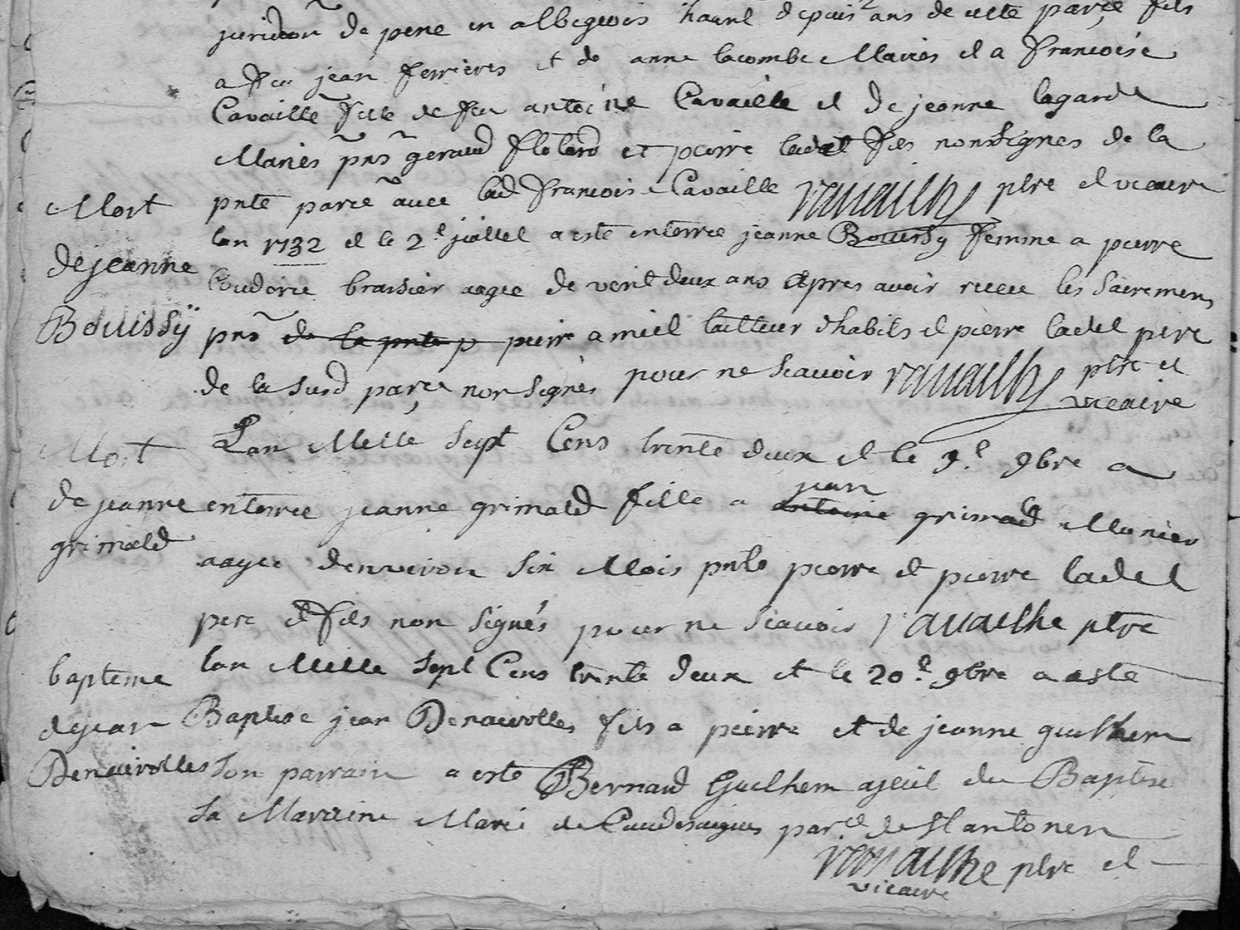 juridion de pene en albigeois hant depuis ans de cette parce fils
a feu jean ferrières et de anne lacombe Mariés et a françoise
Cavaille fille de feu antoine Cavaille et de jeanne lagarde
Mariés pns geraud et pierre ladet fils non signes de la
pnte parce avec lad françoise Cavaille ravailhe ptre et vicaire
Mort lan 1732 et le 2e juillet a esté enterree jeanne Bouissy femme a pierre
de jeanne Couderic brassier aagee de vent deux ans apres avoir receu les sacremens
Bouissÿ pns de la pnte p pierre amiel tailleur dhabits et pierre ladet pere
de la susd parce non signés pour ne scavoir ravailhe ptre et
vicaire
Mort Lan Mille sept Cens trente deux et le 9e 9bre a
de jeanne enterree jeanne grimald fille a antoine jean grimald Munier
grimald aagee denviron six Mois pnts pierre et pierre ladet
pere et fils non signés pour ne scavoir ravailhe ptre
bapteme lan Mille sept Cens trente deux et le 20e 9bre a esté
de jean Baptise jean Denairolles fils a pierre et de jeanne guilhem
Denairolles son parrain a esté Bernard Guilhem ajeul du Baptise
sa Marraine Marie de Caudesaigues parce de st antonen
ravailhe ptre et
vicaire